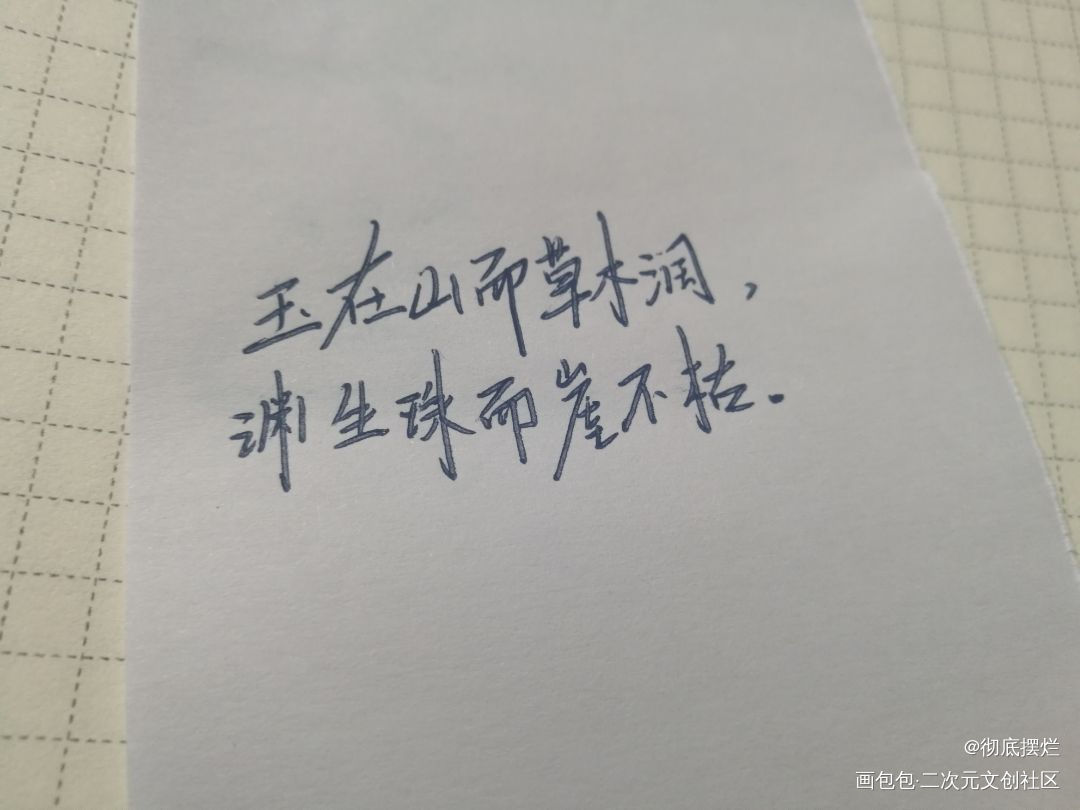 玉在山而草木润，
渊生珠而崖不枯.
@彻底摆烂
画包包·二次元文创社区